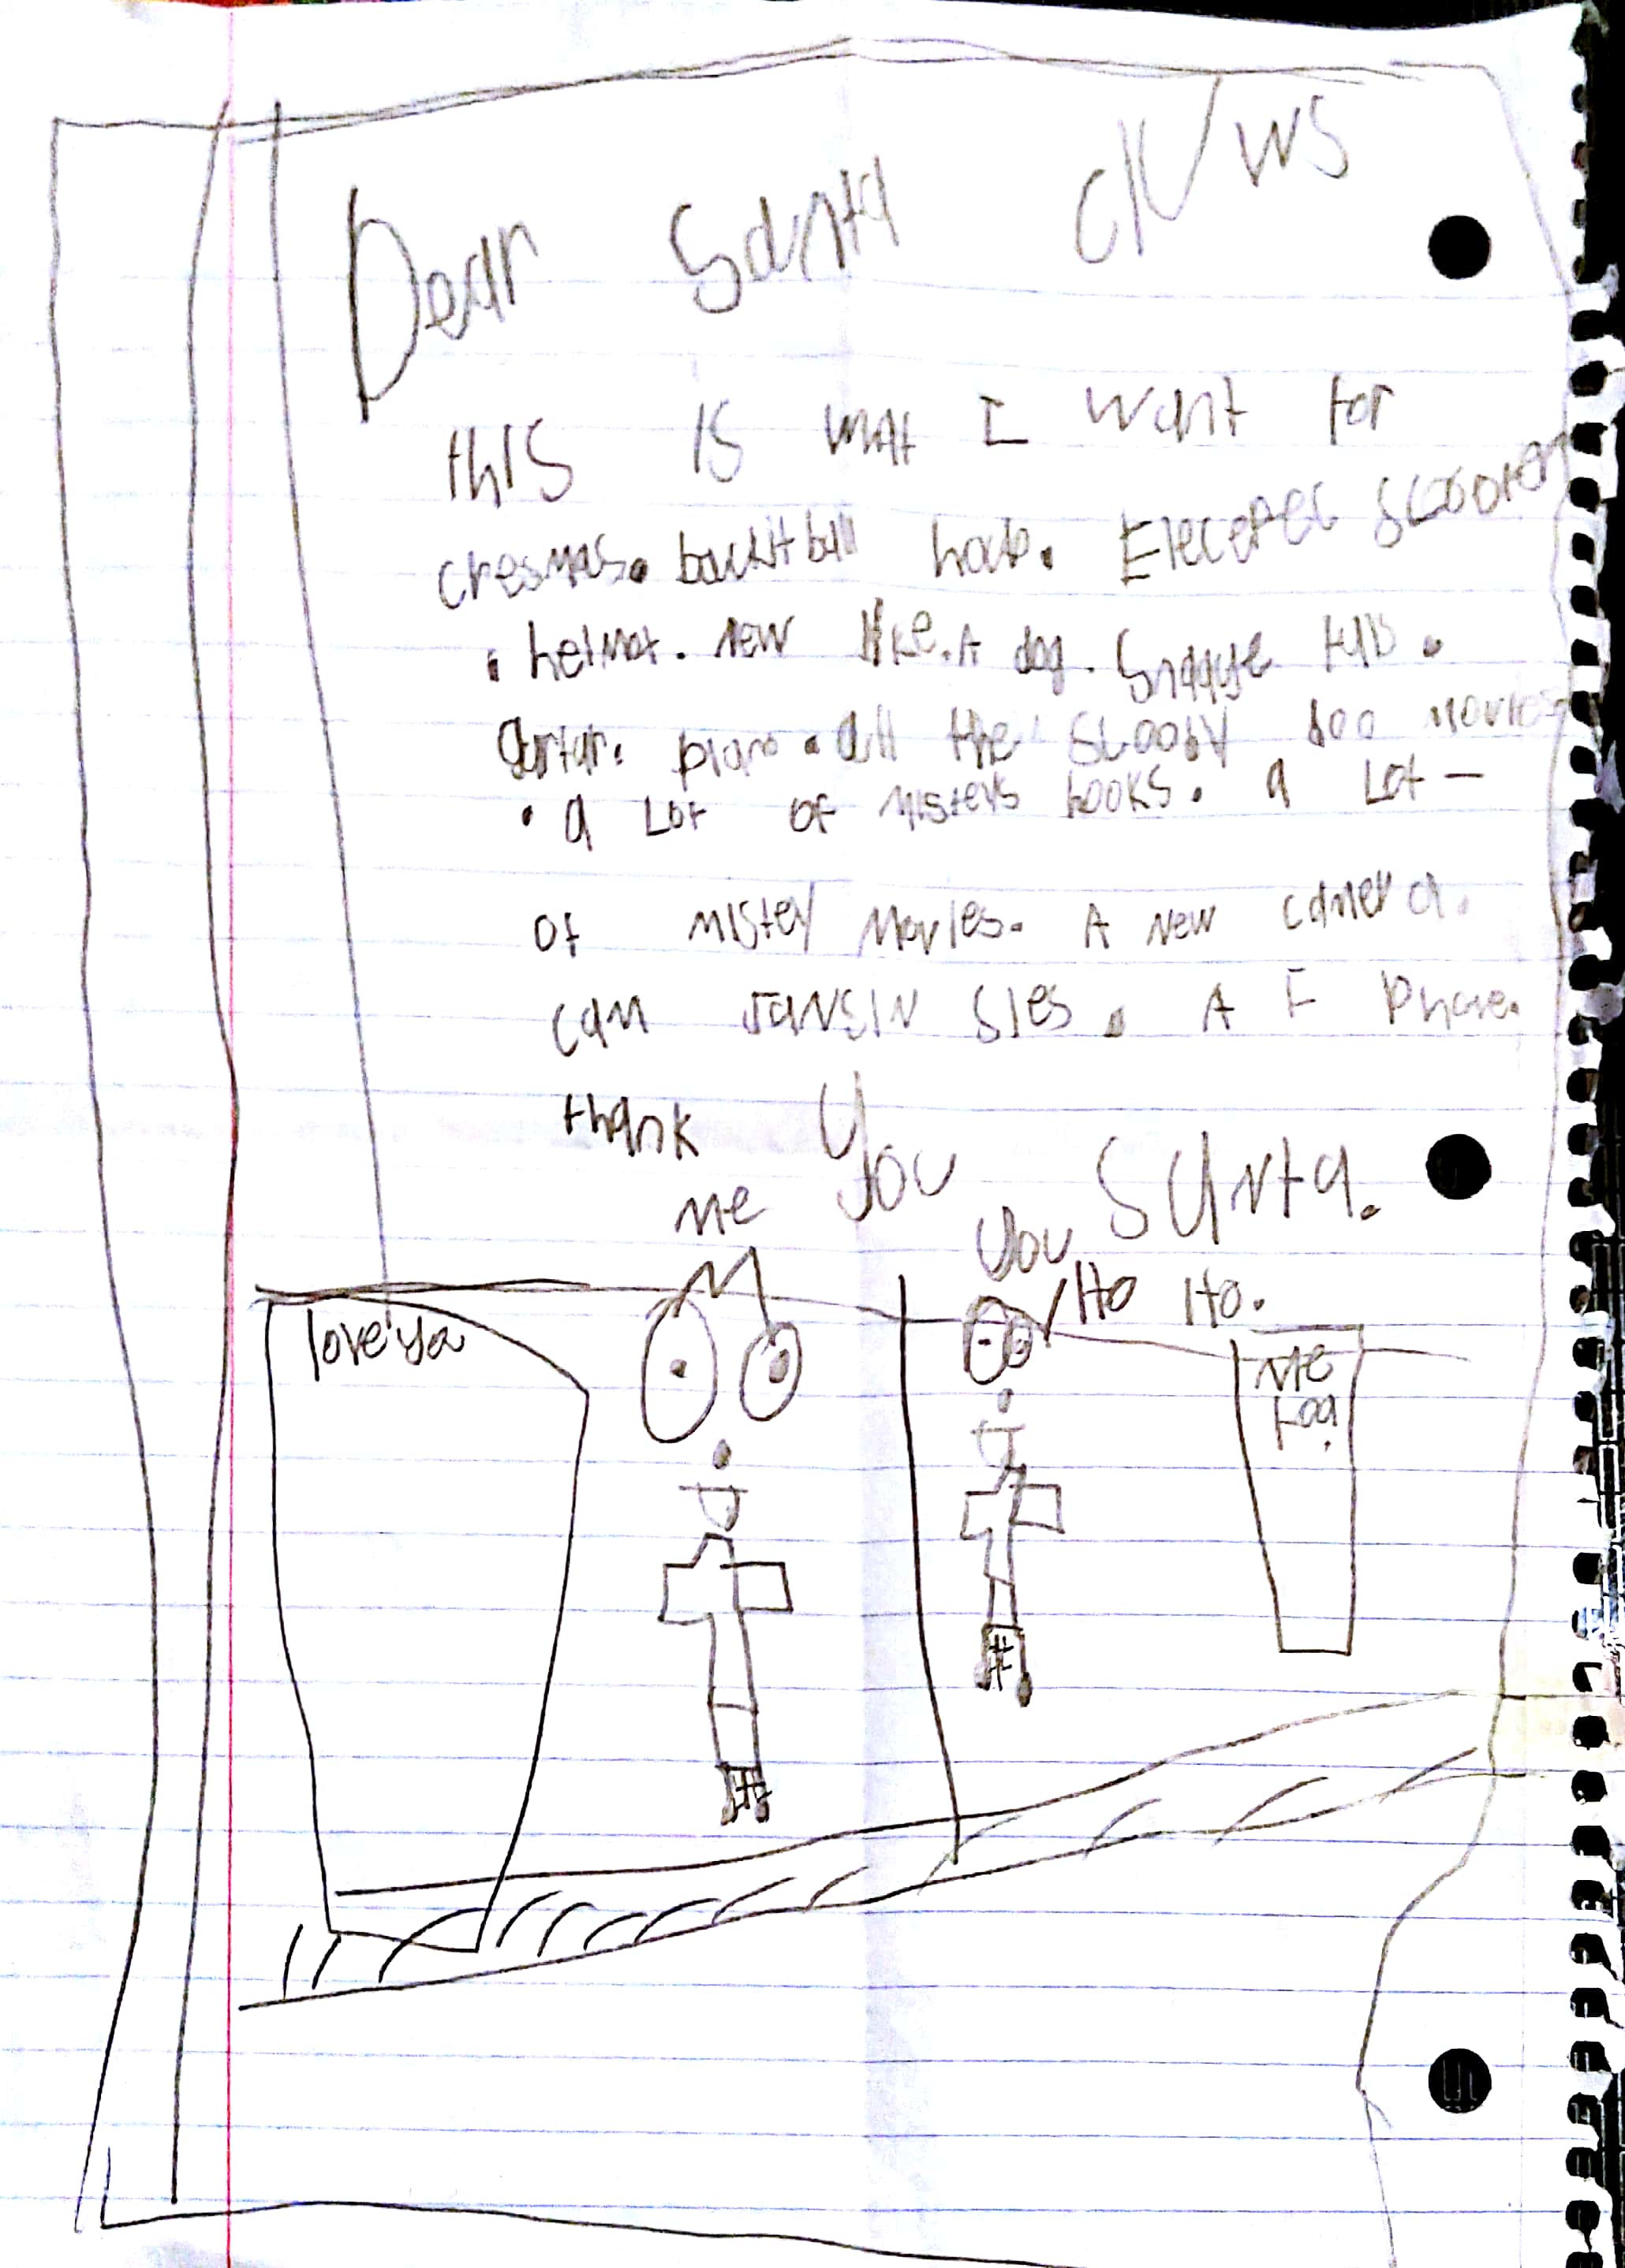 Dear Santa clUws
this is what I want for
cresmas. backitball hoop. Elecerec scooter
. helmat. new Bike. A dog. Snaqye
Gurtar. piano. all the scooby doo movies
. a Lot of misterys books. a Lot -
of mistery Movies. A new camera.
can JANSIN Sies. A I Phone.
thank you Santa.
me
you
Ho Ho.
love ya
me
too.